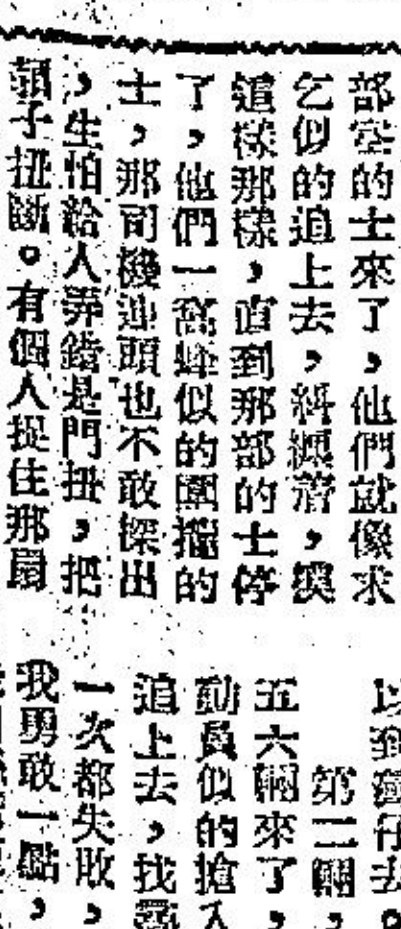 部空的士來了，他們就像求
乞似的追上去，糾纏着，嘆
這樣那樣，直到那部的士停
了，他們一窩蜂似的圍攏的
士，那司機連頭也不敢探出
，生怕給人弄錯是門扭，把
頸子扭斷。有個人捉住那扇
以到薄仔去。
第二輛，
五六輛來了，
動員似的搶入
追上去，找尋
一次都失敗，
我勇敢一點，